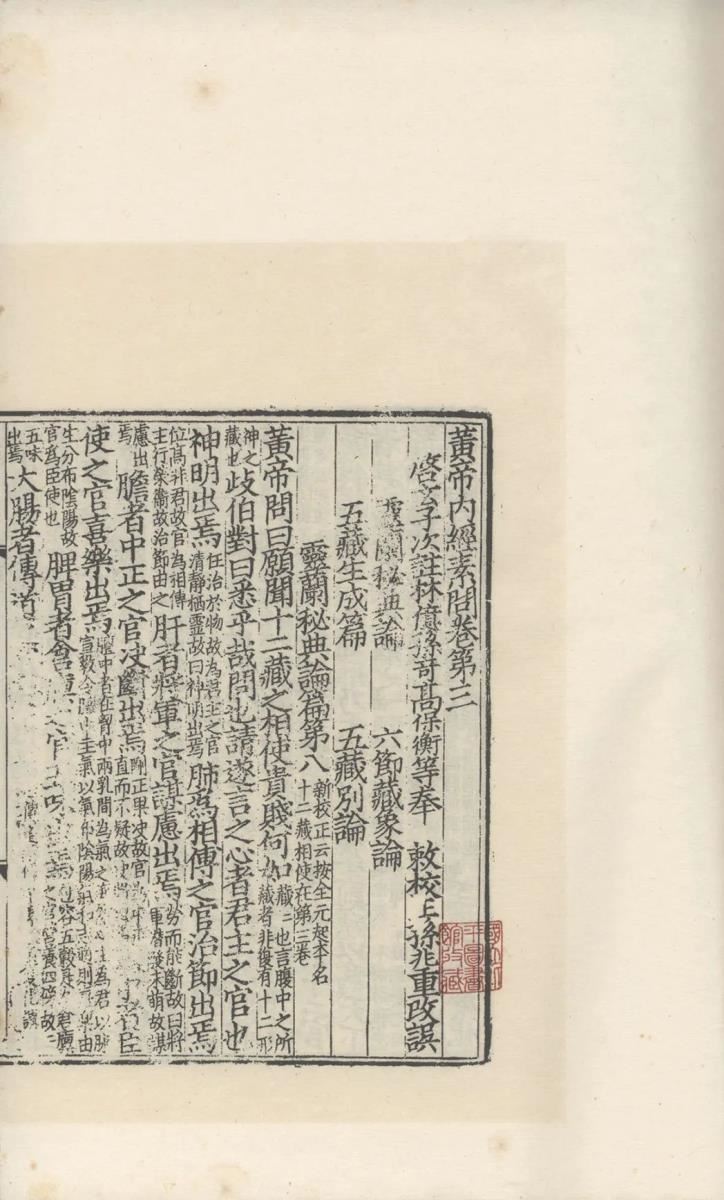 黃帝內經素問卷第三
啓玄子次註林億孫奇高保衡等奉　敕校正孫兆重改誤
靈蘭秘典論　六節藏象論
五藏生成篇　五藏別論
靈蘭秘典論篇第八 新校正云按全元起本名十二藏相使在第三卷
黃帝問曰願聞十二藏之相使貴賤何如 藏藏也言腹中之所藏者非復有十二形
神之藏也 歧伯對曰悉乎哉問也請遂言之心者君主之官也
神明出焉 任治於物故為君主之官清静栖靈故曰神明出焉 肺為相傳之官治節出焉
位高非君故官為相傳主行榮衞故治節由之 肝者將軍之官謀慮出焉 勇而能斷故曰將軍潛發未萌故謀
慮出焉 膽者中正之官決斷出焉 剛正果決故官直而不疑故 臣
使之官喜樂出焉 膻中者在胷中兩乳間為氣之為君以敷宣教令膻中主氣以氣布陰陽氣和則喜樂由
生分布陰陽故官為臣使也 脾胃者倉 之官五 包容五穀 倉廩 之官 養四 故
五味出焉 大腸者傳道
國立
平圖書
館收藏